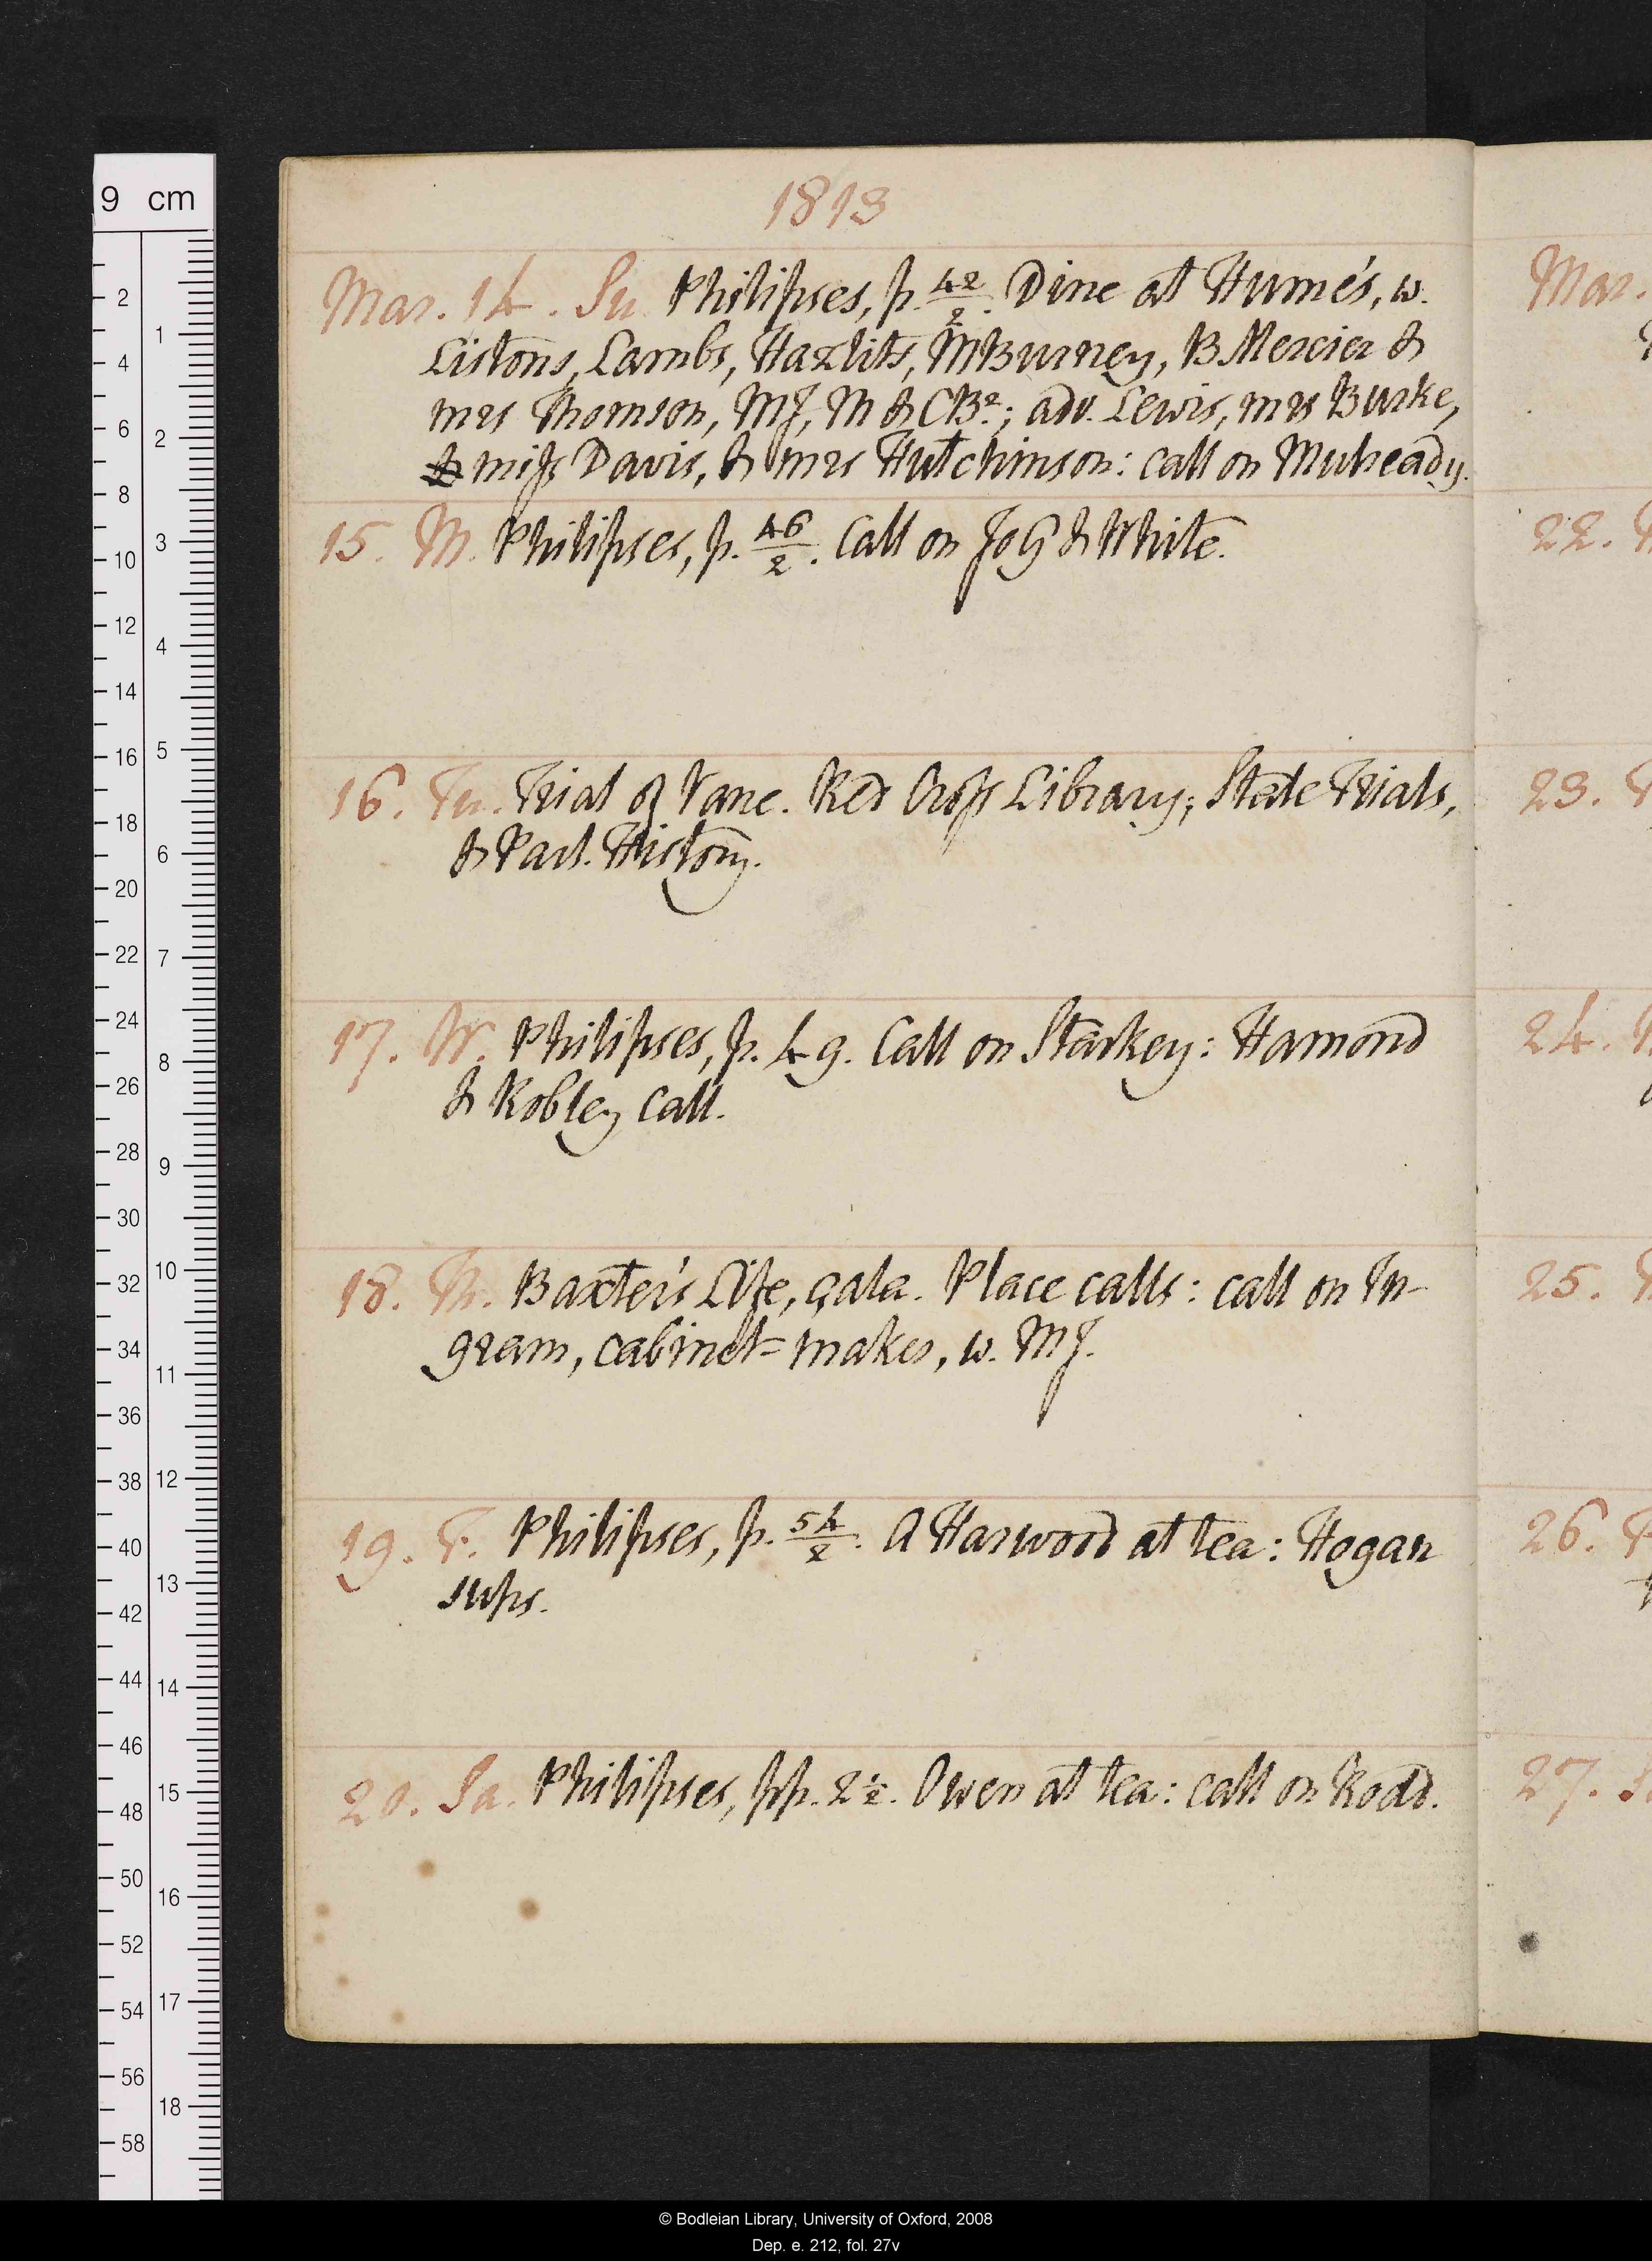 1813
Mar. 14. Su. Philipses, p. 42/2. Dine at Hume's, w.
Listons, Lambs, Hazlits, MBurney, B Mercier &
mrs Thomson, MJ, M & CB2; adv. Lewis, mrs Burke,
& miss Davis, & mrs Hutchinson: call on Mulready.
15. M. Philipses, p. 46/2. Call on JoG & White.
16. Tu. Trial of Vane. Red Cross Library; State Trials,
& Parl. History.
17. W. Philipses, p. 49. Call on Starkey: Hamond
& Robley call.
18. Th. Baxter's Life, çala. Place calls: call on In-
gram, cabinet=maker, w. MJ.
19. F. Philipses, p. 54/2. A Harwood at tea: Hogan
sups.
20. Sa. Philipses, pp. 2 1/2. Owen at tea: call on Rodd.
Mar.
22.
23.
24.
25.
26.
27.
9 cm
2
4
6
8
10
12
14
16
18
20
22
24
26
28
30
32
34
36
38
40
42
44
46
48
50
52
54
56
58
1
2
3
4
5
6
7
8
9
10
11
12
13
14
15
16
17
18
© Bodleian Library, University of Oxford, 2008
Dep. e. 212, fol. 27v